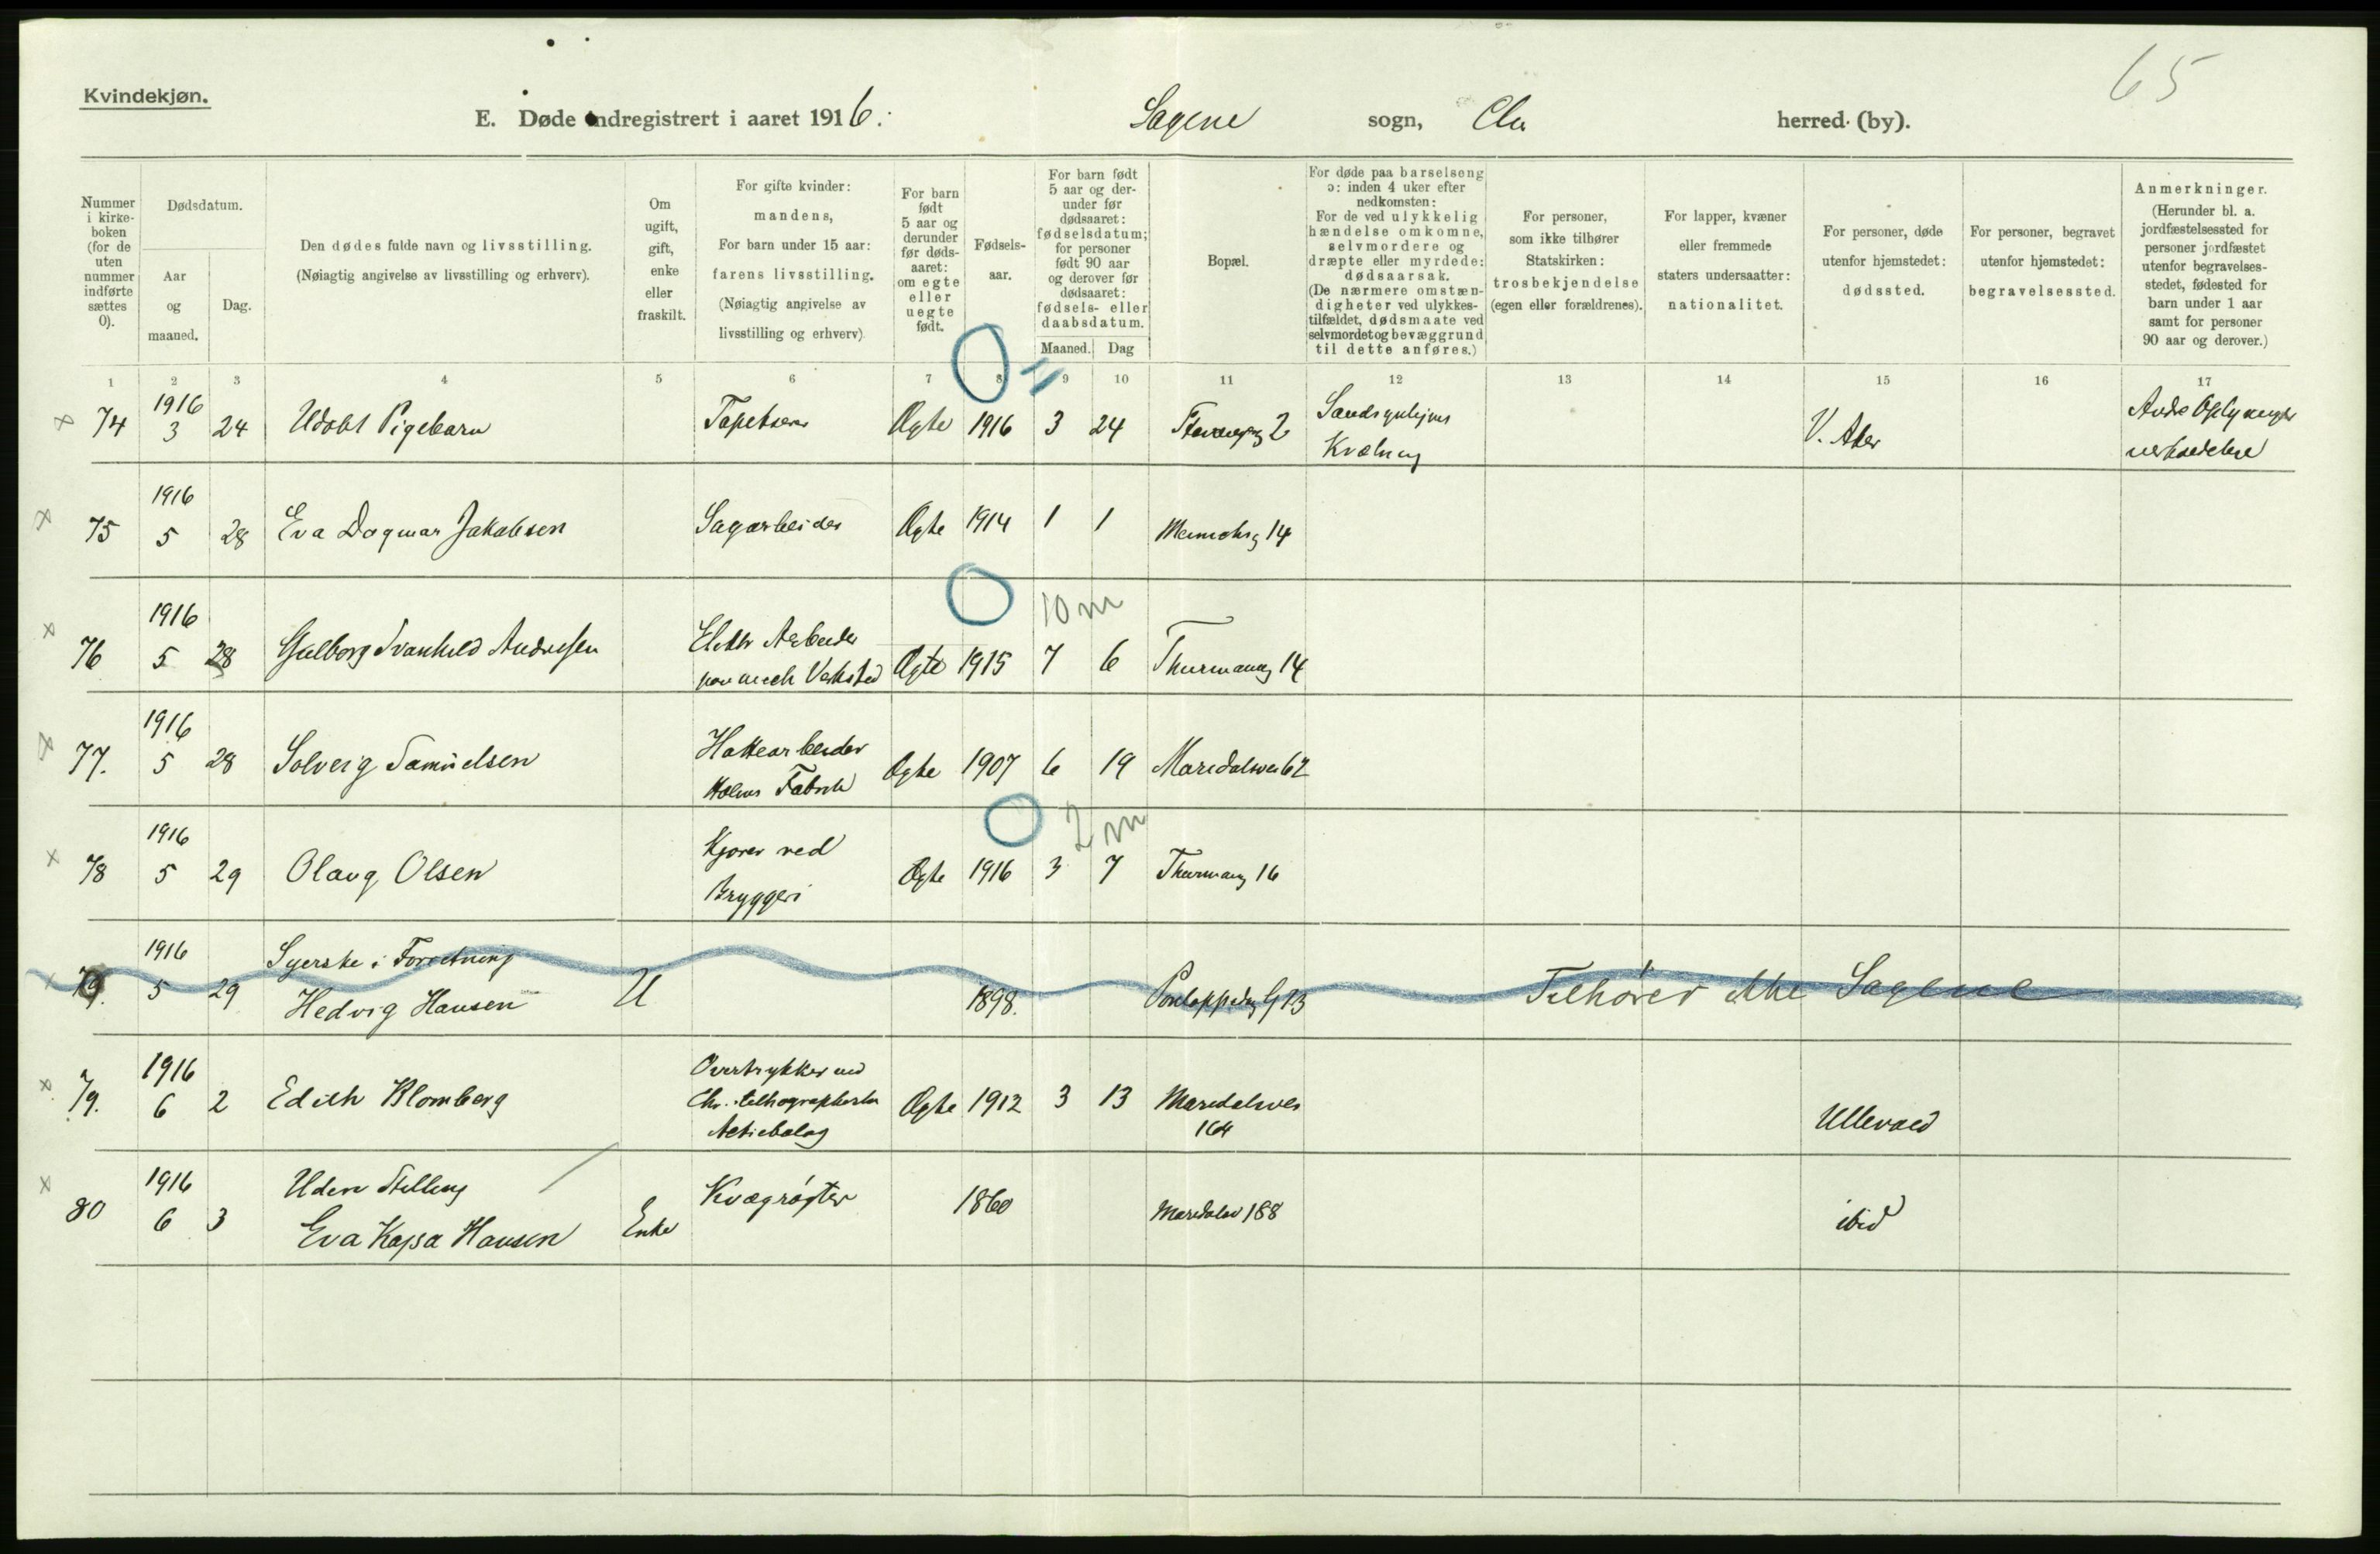 65
Kvindekjøn.
E. Døde indregistrert i aaret 1916. Sagene sogn, Chra herred (by).
Nummer i kirkeboken (for de uten nummer indførte sættes 0).
Dødsdatum.
Aar og maaned.
Dag.
Den dødes fulde navn og livsstilling.
(Nøiagtig angivelse av livsstilling og erhverv).
Om ugift, gift, enke eller fraskilt.
For gifte kvinder: mandens,
For barn under 15 aar: farens livsstilling.
(Nøiagtig angivelse av livsstilling og erhverv)
For barn født 5 aar og derunder før dødsaaret: om egte eller uegte født.
Fødselsaar.
For barn født 5 aar og derunder før dødsaaret: fødselsdatum; for personer født 90 aar og derover før dødsaaret: fødsels- eller daabsdatum.
Maaned. Dag
Bopæl.
For døde paa barselseng ɔ: inden 4 uker efter nedkomsten:
For de ved ulykkelig hændelse omkomne, selvmordere og dræpte eller myrdede: dødsaarsak.
(De nærmere omstændigheter ved ulykkestilfældet, dødsmaate ved selvmordet og bevæggrund til dette anføres.)
For personer, som ikke tilhører Statskirken: trosbekjendelse (egen eller forældrenes).
For lapper, kvæner eller fremmede staters undersaatter: nationalitet.
For personer, døde utenfor hjemstedet: dødssted.
For personer, begravet utenfor hjemstedet: begravelsessted.
Anmerkninger.
(Herunder bl. a. jordfæstelsessted for personer jordfæstet utenfor begravelsesstedet, fødested for barn under 1 aar samt for personer 90 aar og derover.)
1 2 3 4 5 6 7 8 9 10 11 12 13 14 15 16 17
x 74 1916 3 24 Udøbt Pigebarn Tapetserer Ægte 1916 3 24 2 Sandsynligvis Kvælning V. Aker
x 75 1916 5 28 Eva Dagmar Jakobsen Sagarbeider Ægte 1914 1 1 14
10 m
x 76 1916 5 28 Gulborg Svanhild Andresen Elektr Arbeider paa mech Verksted Ægte 1915 7 6 Thurmannsg 14
x 77. 1916 5 28 Solveig Samuelsen Hattearbeider Fabrik Ægte 1907 6 19 Maridalsvei 62
2 m
x 78 1916 5 29 Olaug Olsen Kjører ved Bryggeri Ægte 1916 3 7 Thurmannsg 16
x 79. 1916 5 29 Syerske i Forretning Hedvig Hansen U 1898. 13 Tilhører ikke Sagene
x 79. 1916 6 2 Edith Blomberg Overtrykker ved Chr. lithographiske Actiebolag Ægte 1912 3 13 Maridalsvei 164 Ullevaal
x 80 1916 6 3 Uden Stilling Eva Kajsa Hansen Enke Kvægrøgter 1860 Maridalsv 188 ibid